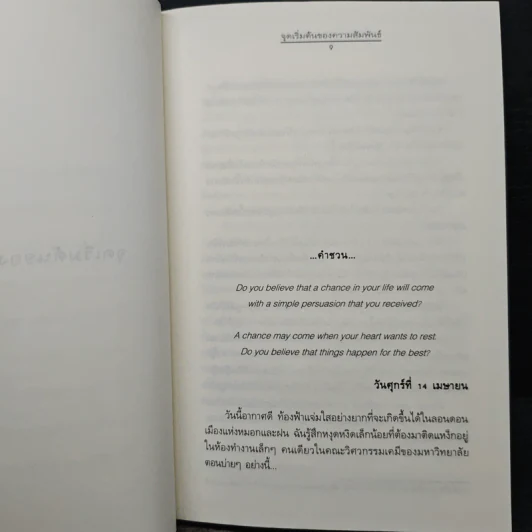 จุดเริ่มต้นของความสัมพันธ์
๑
...คำชวน...
Do you believe that a chance in your life will come
with a simple persuasion that you received?
A chance may come when your heart wants to rest.
Do you believe that things happen for the best?
วันศุกร์ที่ 14 เมษายน
วันนี้อากาศดี ท้องฟ้าแจ่มใสอย่างยากที่จะเกิดขึ้นได้ในลอนดอน
เมืองแห่งหมอกและฝน ฉันรู้สึกหงุดหงิดเล็กน้อยที่ต้องมาติดแหง็กอยู่
ในห้องทำงานเล็กๆ คนเดียวในคณะวิศวกรรมเคมีของมหาวิทยาลัย
ตอนบ่ายๆ อย่างนี้...